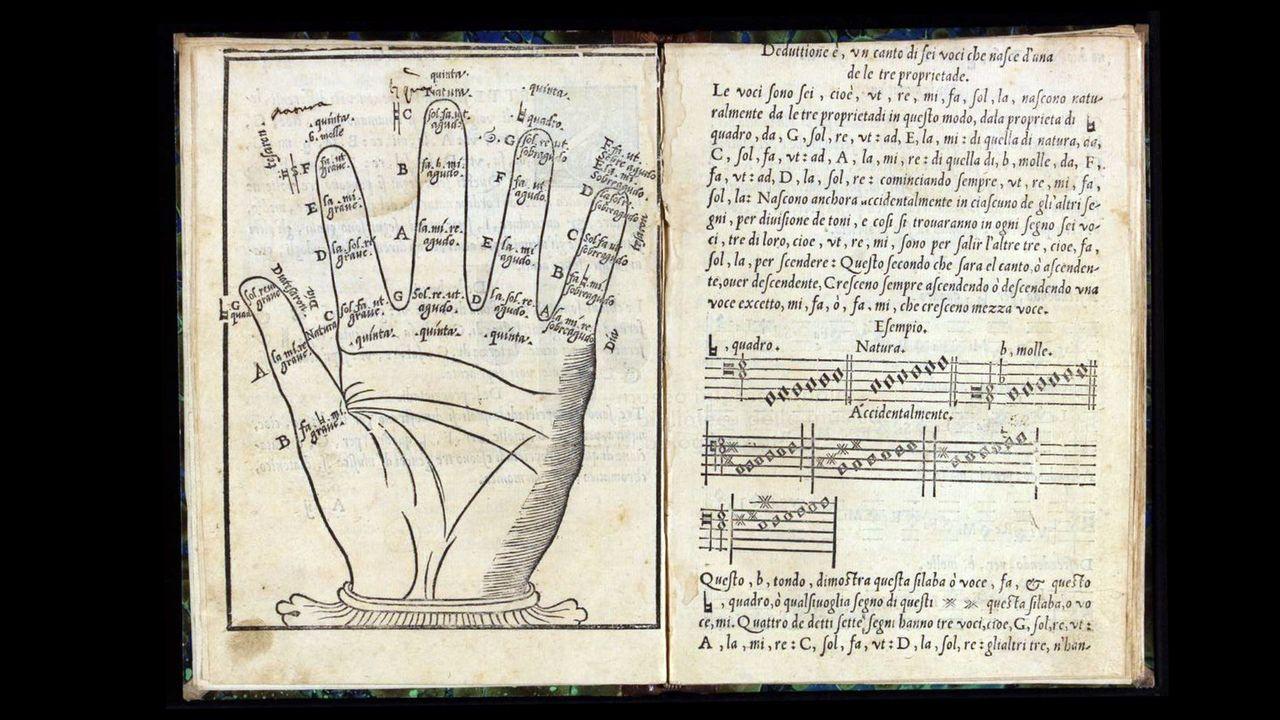 quinta.
Natura.
C
ſol.fa.ut.
agudo.
quinta.
♮quadro.
G
ſol.re.ut.
ſobreagudo
quinta.
b.molle
F
fa.ut.
graue.
B
fa.♮.mi.
agudo.
F
fa.ut.
agudo.
D
la.ſol.re.
ſobreagudo.
E
la.mi.
graue.
A
la.mi.re.
agudo.
E
la.mi
agudo.
C
ſol.fa.ut.
ſobreagudo
D
la.ſol.re.
graue.
Diateſſaron.
G
ſol.re.ut.
B
fa.♮.mi.
ſobreagudo
C
ſol.fa.ut.
graue.
G
ſol.re.ut.
agudo.
D
la.ſol.re.
agudo.
A
la.mi.re.
ſobreagudo
Natura
Dia
quinta.
quinta.
quinta.
A
la.mi.re
graue.
B
fa.♮.mi.
graue.
Deduttione è, vn canto di ſei voci che naſce d'una
de le tre proprietade.
Le voci ſono ſei, cioè, vt, re, mi, fa, ſol, la, naſcono natu-
ralmente da le tre proprietadi in queſto modo, dala proprieta di ♮
quadro, da, G, ſol, re, vt: ad, E, la, mi: di quella di natura, da,
C, ſol, fa, vt: ad, A, la, mi, re: di quella di, b, molle, da, F,
fa, vt: ad, D, la, ſol, re: cominciando ſempre, vt, re, mi, fa,
ſol, la: Naſcono anchora accidentalmente in ciaſcuno de gli altri ſe-
gni, per diuiſione de toni, e coſi ſi trouaranno in ogni ſegno ſei vo-
ci, tre di loro, cioe, vt, re, mi, ſono per ſalir l'altre tre, cioe, fa,
ſol, la, per ſcendere: Queſto ſecondo che ſara el canto, ò aſcenden-
te, ouer deſcendente, Creſceno ſempre aſcendendo ò deſcendendo vna
voce excetto, mi, fa, ò, fa, mi, che creſceno mezza voce.
Eſempio.
♮, quadro. Natura. b, molle.
Accidentalmente.
Queſto, b, tondo, dimoſtra queſta ſilaba ò voce, fa, & queſto
♮, quadro, ò qualſiuoglia ſegno di queſti 𝄪 𝄪 queſta ſilaba, o vo
ce, mi. Quattro de detti ſette ſegni hanno tre voci, cioe, G, ſol, re, vt:
A, la, mi, re: C, ſol, fa, vt: D, la, ſol, re: gli altri tre, n'han-